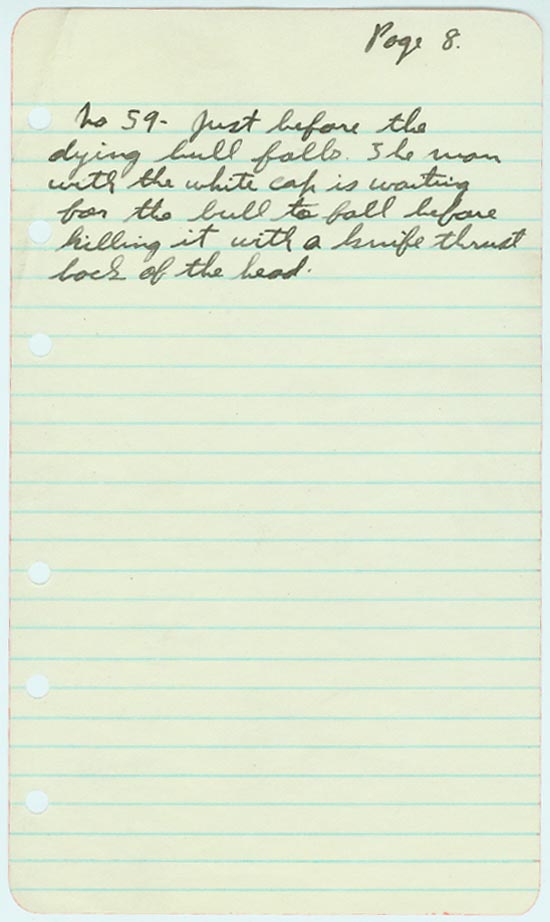 Page 8.
No 59- Just before the
dying bull falls. The man
with the white cap is waiting
for the bull to fall before
killing it with a knife thrust
back of the head.